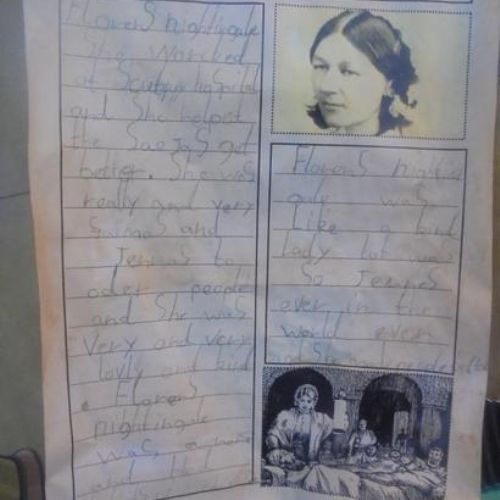 Florens nightingale
She worked
at Scutary hospital
and She helpt
the SoejaS get
better. She was
really and very
famas and
Jennas to
oder people
and She was
Very and very
lovly and kind
. Florens
nightingale
was a
and
Florens nightin
gale was
Like a kind
lady tat was
So Jennes
ever in the
world even
and She